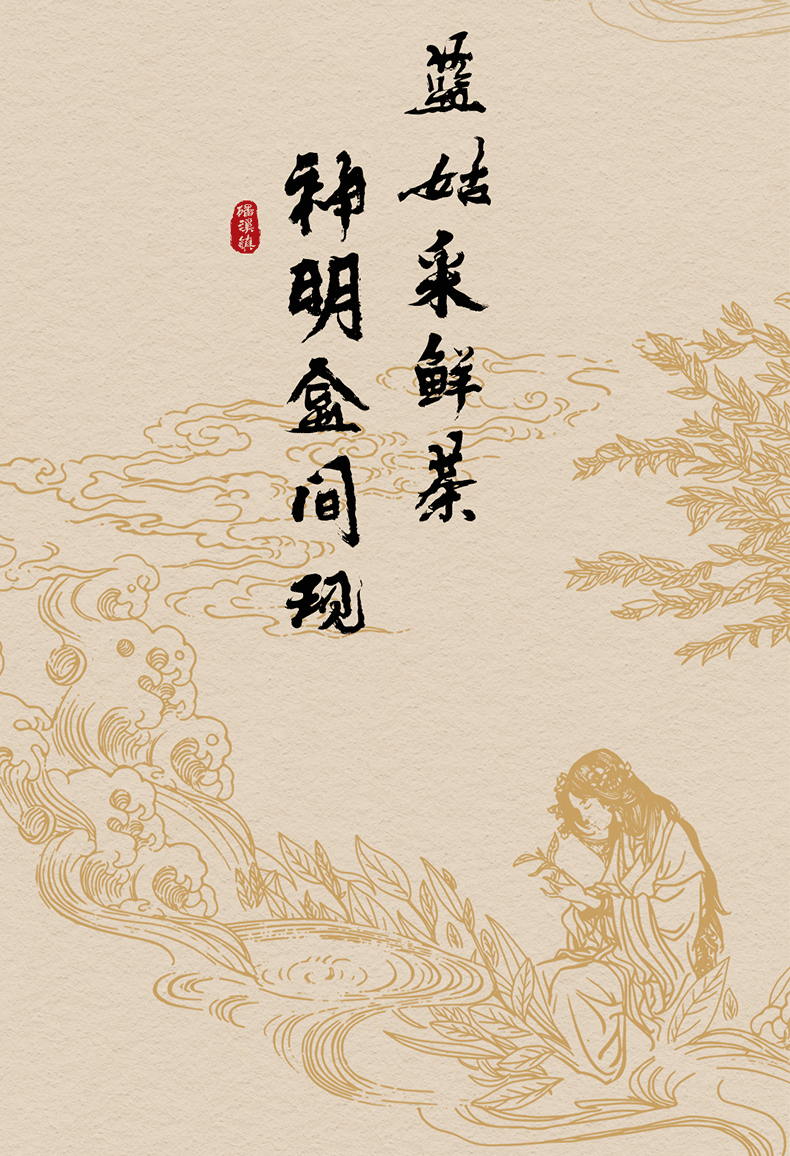 蓝姑采鲜茶
神明盒间现
磻溪镇